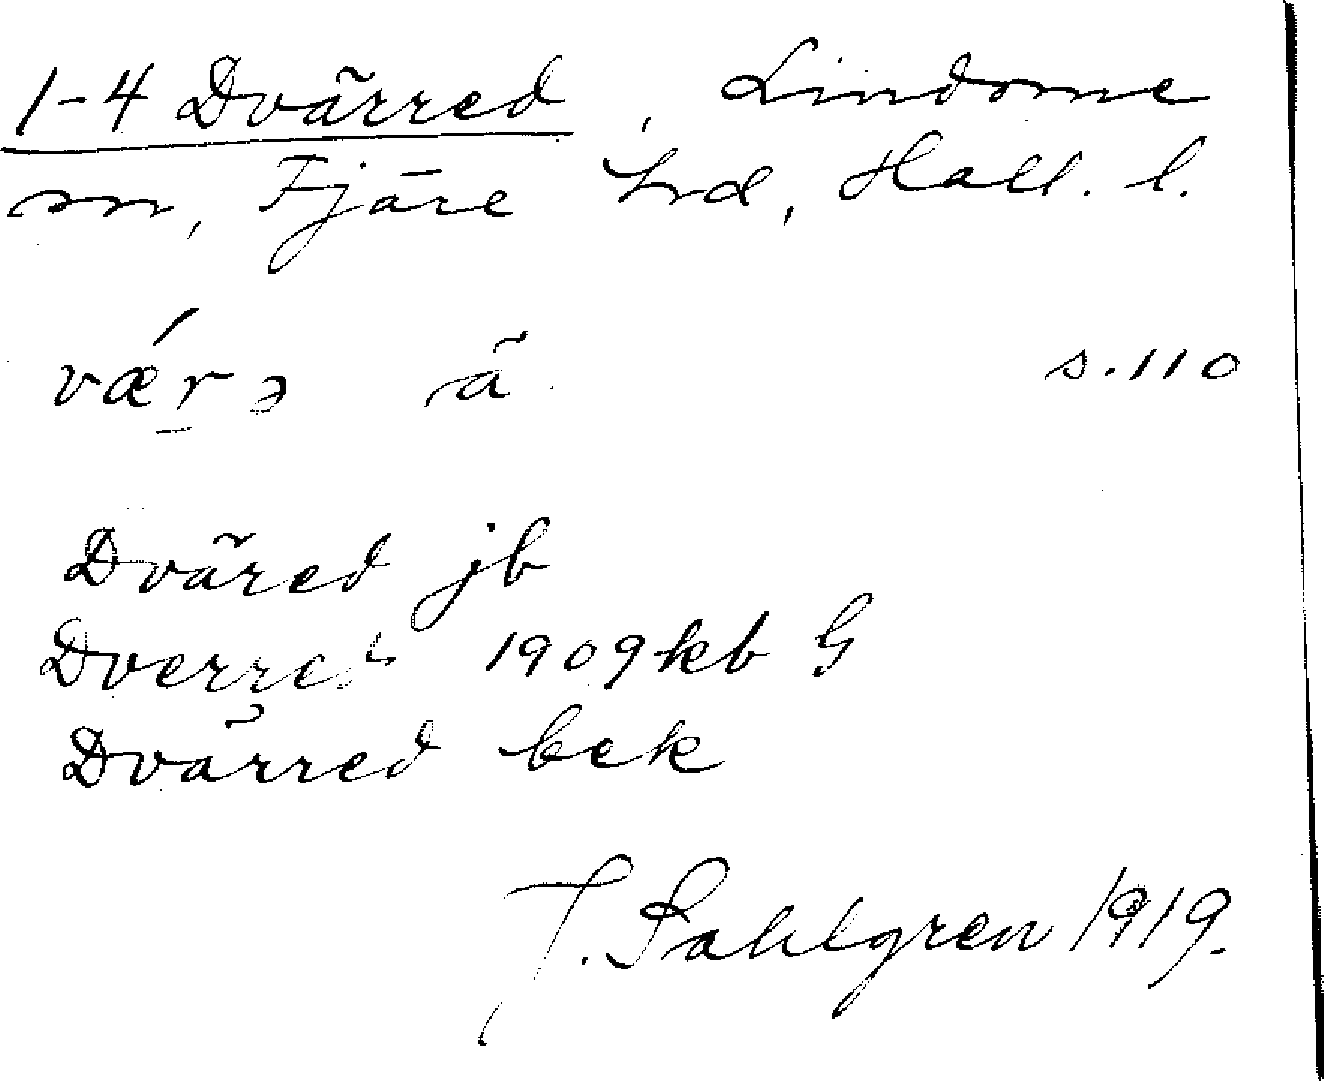 1-4 Dvärred, Lindome
sn, Fjäre hd, Hall. l.
væ´rə ä s. 110
Dväred jb
Dverred 1909 kb G
Dvärred bek
J. Sahlgren 1919.